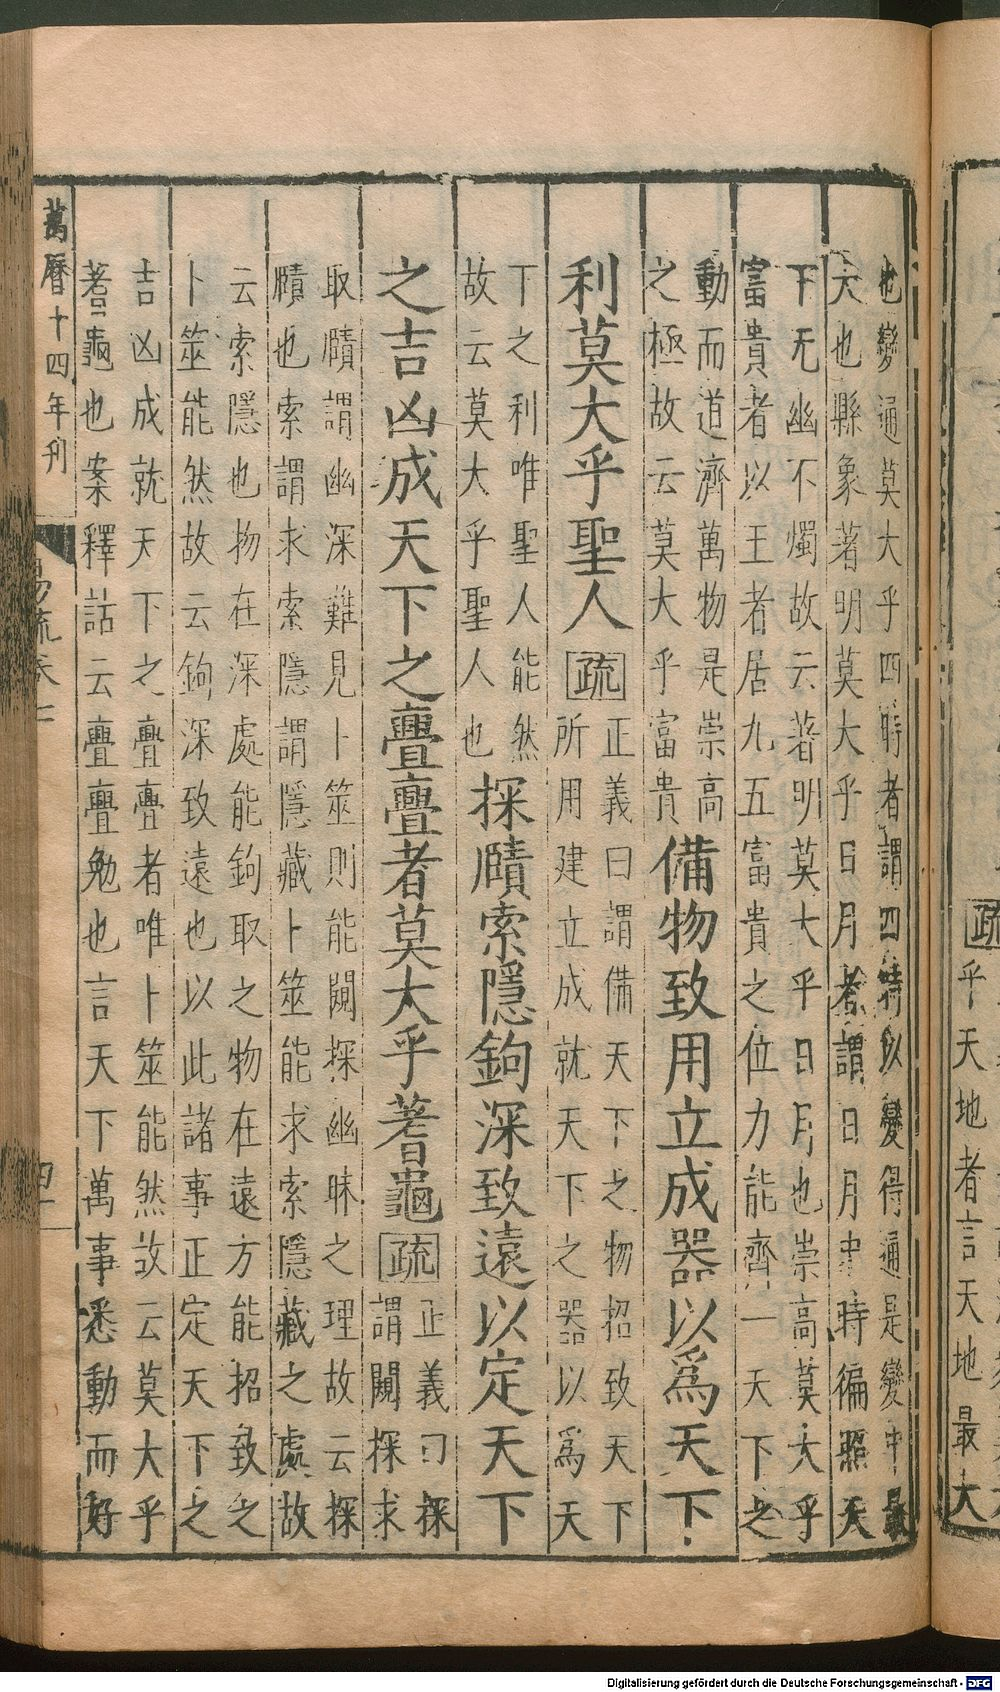 也變通莫大乎四時者謂四時以變得通是變中最
大也縣象著明莫大乎日月者謂日月中時徧照天
下无幽不燭故云著明莫大乎日月也崇高莫大乎
富貴者以王者居九五富貴之位力能齊一天下之
動而道濟萬物是崇高
之極故云莫大乎富貴
備物致用立成器以爲天下
利莫大乎聖人
疏
正義曰謂備天下之物招致天下
所用建立成就天下之器以爲天
下之利唯聖人能然
故云莫大乎聖人也
探賾索隱鉤深致遠以定天下
之吉凶成天下之亹亹者莫大乎蓍龜
疏
正義曰探
謂闚探求
取賾謂幽深難見卜筮則能闚探幽昧之理故云探
賾也索謂求索隱謂隱藏卜筮能求索隱藏之處故
云索隱也物在深處能鉤取之物在遠方能招致之
卜筮能然故云鉤深致遠也以此諸事正定天下之
吉凶成就天下之亹亹者唯卜筮能然故云莫大乎
蓍龜也案釋詁云亹亹勉也言天下萬事悉動而好
萬曆十四年刊
易疏卷七
疏
乎天地者言天地最大
Digitalisierung gefördert durch die Deutsche Forschungsgemeinschaft - DFG